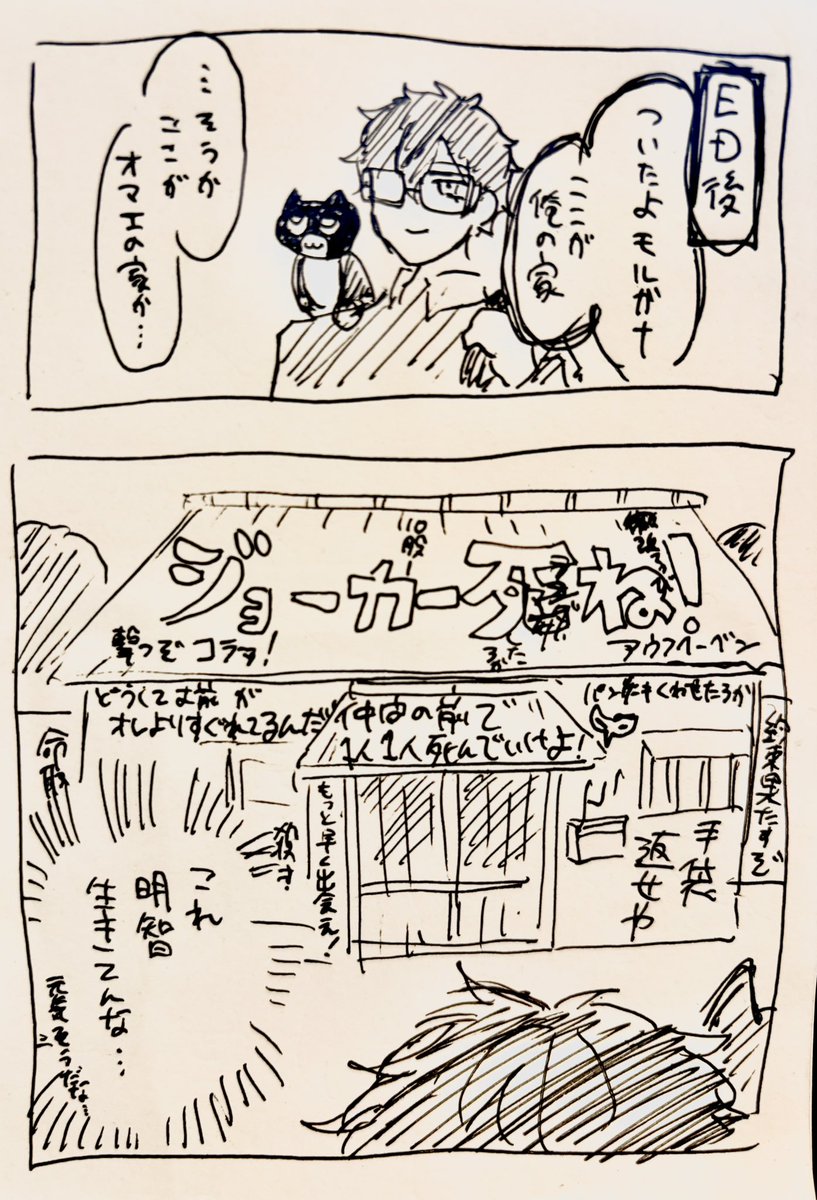 ED後
ついたよモルガナ
ここが
俺の家
…そうか
ここが
オマエの家か…
ジョーカー死ね!
撃つぞコラァ!
アウフヘーベン
どうしてお前が
オレよりすぐれてるんだ
仲間の前で
1人1人死んでいけよ!
パンケーキくわせたろか
約束果たすぞ
命取
もっと早く出会え!
殺す
手袋
返せや
これ
明智
生きてんな…
元気そうだな…